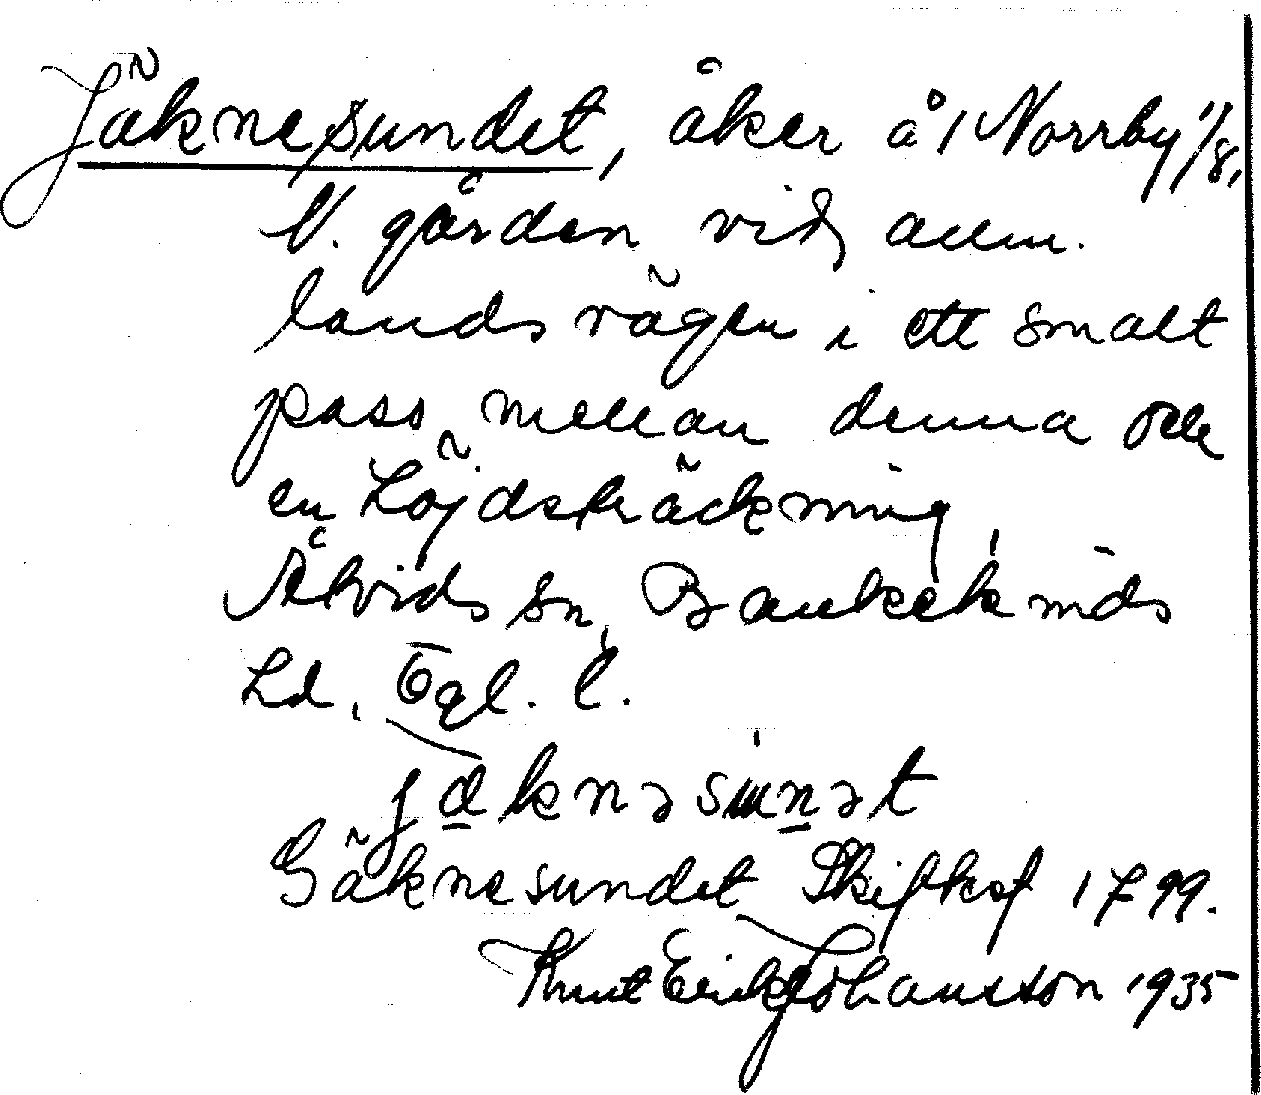 Jäknesundet, åker å 1 Norrby 1/8,
V. gården vid allm.
landsvägen i ett smalt
pass mellan denna och
en höjdsträckning,
Åtvids sn, Bankekinds
hd, Ögl. l.
jäknəsunət
Gäknesundet Skifksf 1799.
Knut Erik Johansson 1935